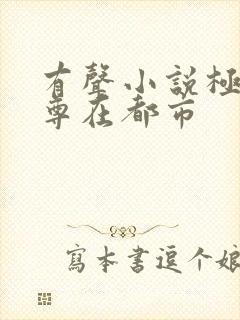 有聲小說極
尊在都市
寫本書逗个娘